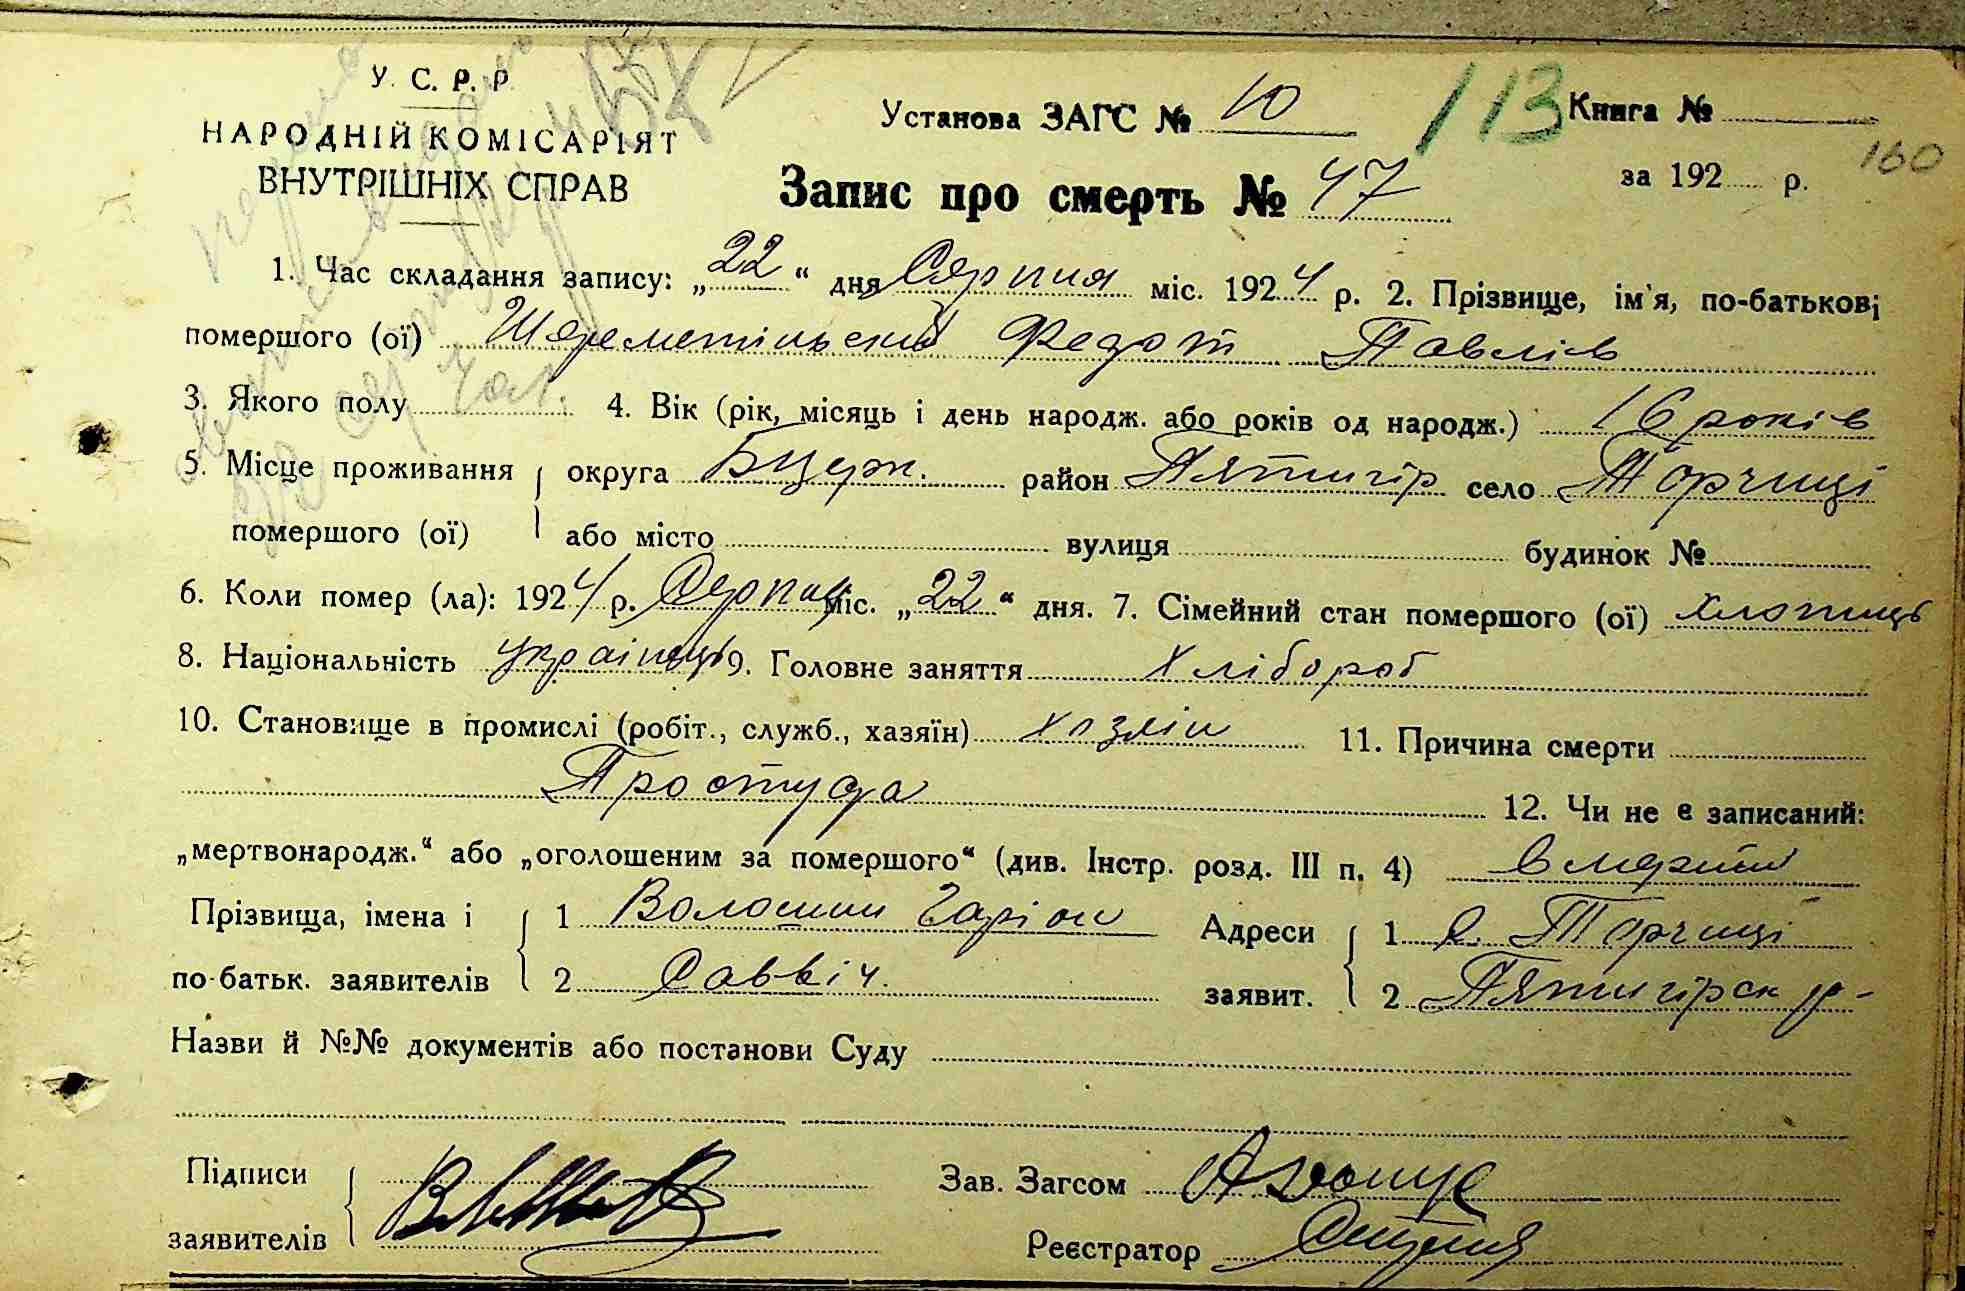 У. С. Р. Р
НАРОДНІЙ КОМІСАРІЯТ
ВНУТРІШНІХ СПРАВ
Установа ЗАГС № 10
113
Книга №
160
Запис про смерть № 47
за 192 р.
1. Час складання запису: „22“ дня Серпня міс. 1924 р. 2. Прізвище, ім'я, по-батькові
помершого (ої) Шереметільский Федот Павлів
3. Якого полу Чол. 4. Вік (рік, місяць і день народж. або років од народж.) 16 років
5. Місце проживання округа Бцерк. район Пятигір село Торчиці
помершого (ої) або місто вулиця будинок №
6. Коли помер (ла): 1924 р. Серпня міс. „22“ дня. 7. Сімейний стан помершого (ої) хлопець
8. Національність українець 9. Головне заняття Хлібороб
10. Становище в промислі (робіт., служб., хазяїн) хозяін 11. Причина смерти
Простуда 12. Чи не є записаний:
„мертвонародж.“ або „оголошеним за помершого“ (див. Інстр. розд. III п. 4) вмерший
Прізвища, імена і 1 Волошин Іларіон Адреси 1 с. Торчиці
по-батьк. заявителів 2 Саввіч. заявит. 2 Пятигірск р-
Назви й №№ документів або постанови Суду
Підписи
заявителів
Зав. Загсом
Реєстратор